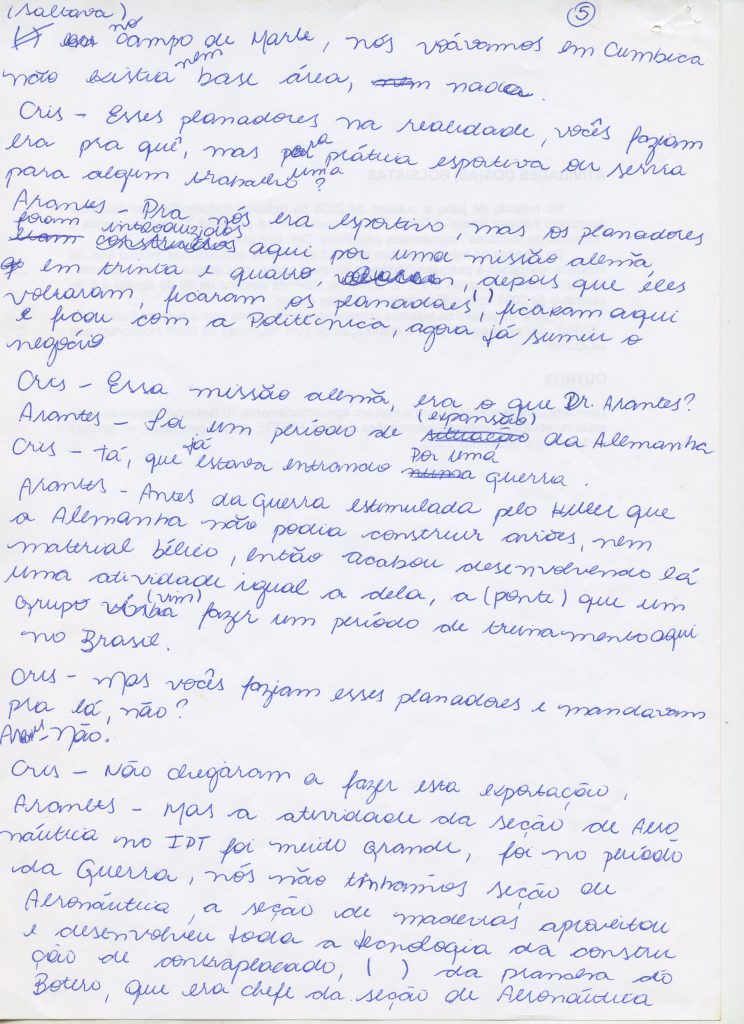 (Saltava) 5
no campo de Marte, nós voávamos em Cumbica
não existia nem base área, nem nada.
Cris - Esses planadores na realidade, vocês faziam
era pra quê, mas para uma prática esportiva ou servia
para algum trabalho?
Arantes - Pra nós era esportivo, mas os planadores
foram introduzidos
eram construidos aqui por uma missão alemã
em trinta e quatro, depois que eles
voltaram, ficaram os planadores, ( ) ficaram aqui
e ficou com a Politécnica, agora já sumiu o
negócio
Cris - Essa missão alemã, era o que Dr. Arantes?
Arantes - Foi um período de situação (expansão) da Alemanha
Cris - Tá, que já estava entrando numa Por uma guerra.
Arantes - Antes da Guerra estimulada pelo Hitler que
a Alemanha não podia construir aviões, nem
material bélico, então acabou desenvolvendo lá
uma atividade igual a dela, a (ponte) que um
grupo (vim) fazer um período de treinamento aqui
no Brasil.
Cris - Mas vocês faziam esses planadores e mandavam
pra lá, não?
Arantes - Não.
Cris - Não chegaram a fazer esta exportação.
Arantes - Mas a atividade da seção de Aero
náutica no IDT foi muito grande, foi no período
da Guerra, nós não tinhamos seção de
Aeronáutica, a seção de madeiras aproveitou
e desenvolveu toda a tecnologia da constru
ção de contraplacado, ( ) da prancha do
Botero, que era chefe da seção de Aeronáutica